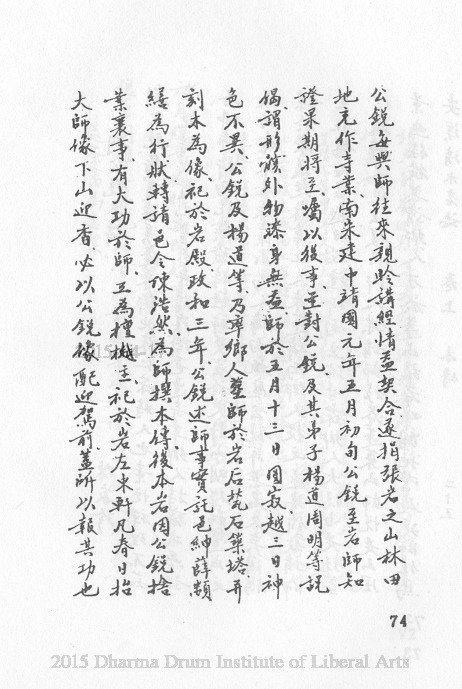 公銳每與師往來親聆講經情益契合遂捐張岩之山林田
地充作寺業南宋建中靖國元年五月初旬公銳至岩師知
證果期將至囑以後事並封公銳及其弟子楊道周明等說
偈謂形骸外物漆身無益師於五月十三日圓寂越三日神
色不異公銳及楊道等乃率鄉人塟師於岩后甃石築塔并
刻木為像祀於岩殿政和三年公銳述師事實託邑紳薛頴
繕為行狀轉請邑令陳浩然為師撰本傳後本岩因公銳捨
業襄事有大功於師立為檀樾主祀於岩左東軒凡春日抬
大師像下山迎香必以公銳像配迎駕前蓋所以報其功也
74
2015 Dharma Drum Institute of Liberal Arts